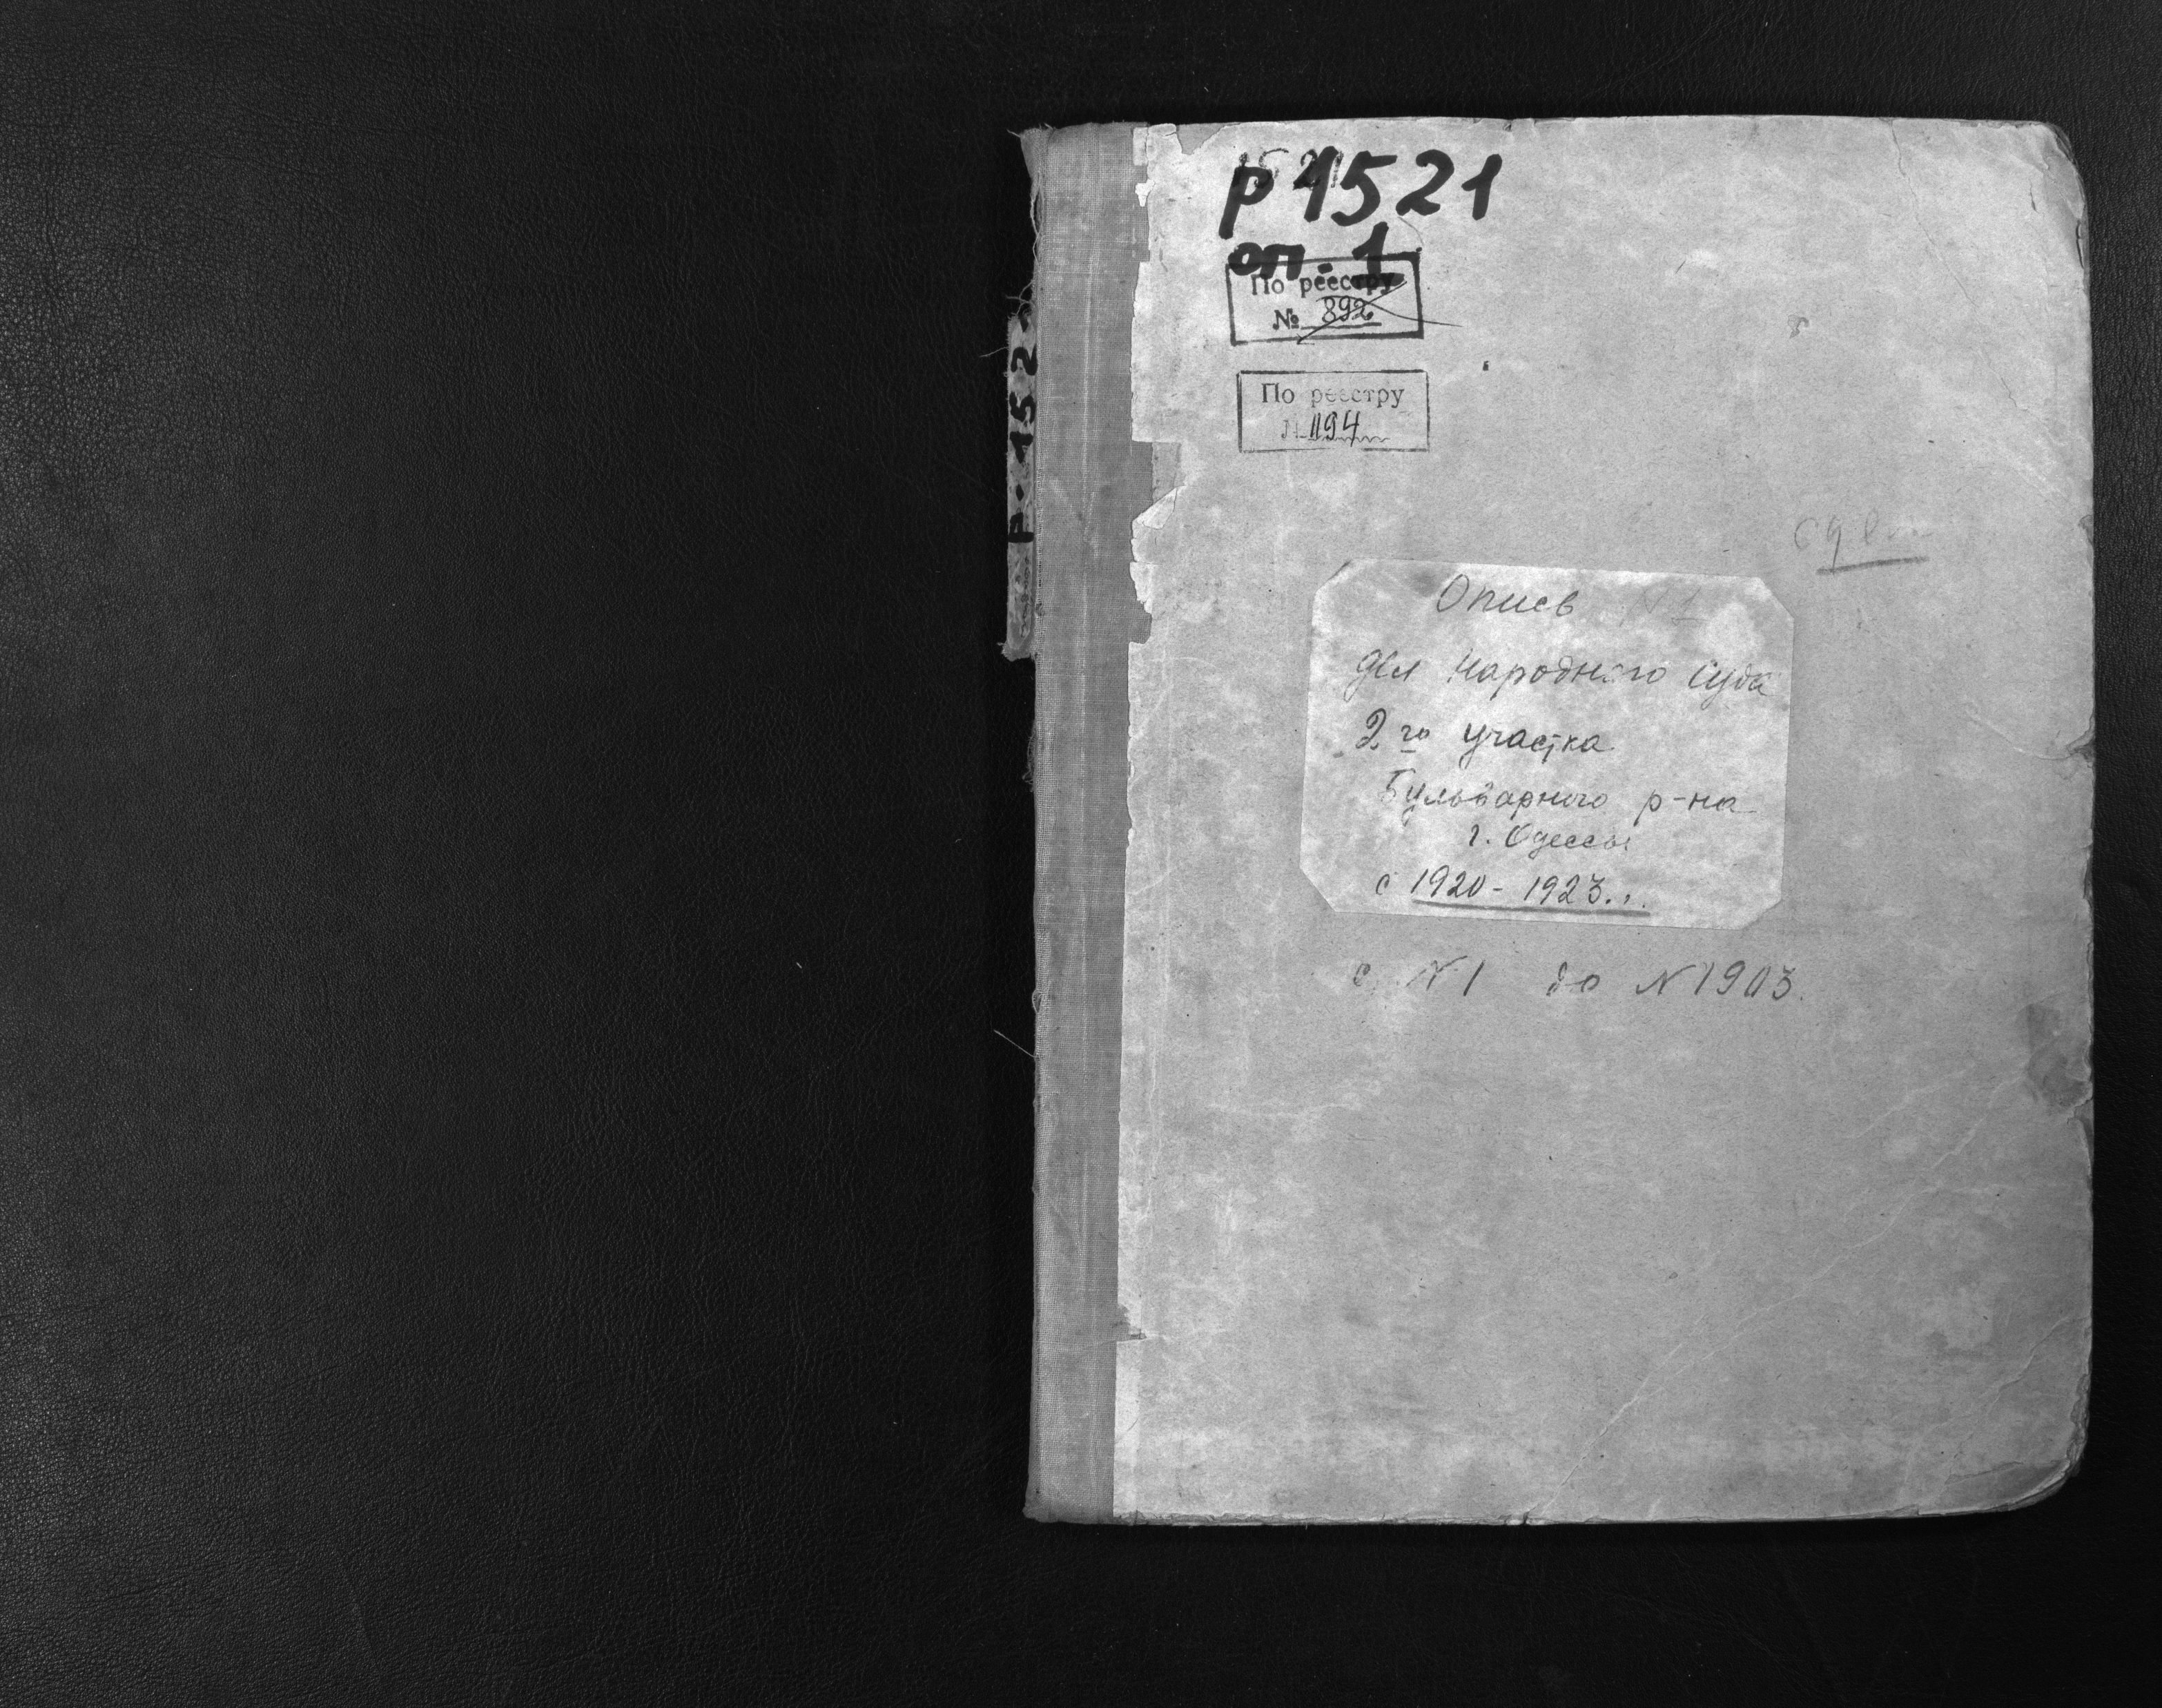 р 1521
оп. 1
По реестру
№ 892
По реестру
N 1194
Р-152
Опись N 1
дел Народного Суда
2го участка
Бульварного р-на
г. Одессы
с 1920 - 1923 г.
с N 1 до N 1903.